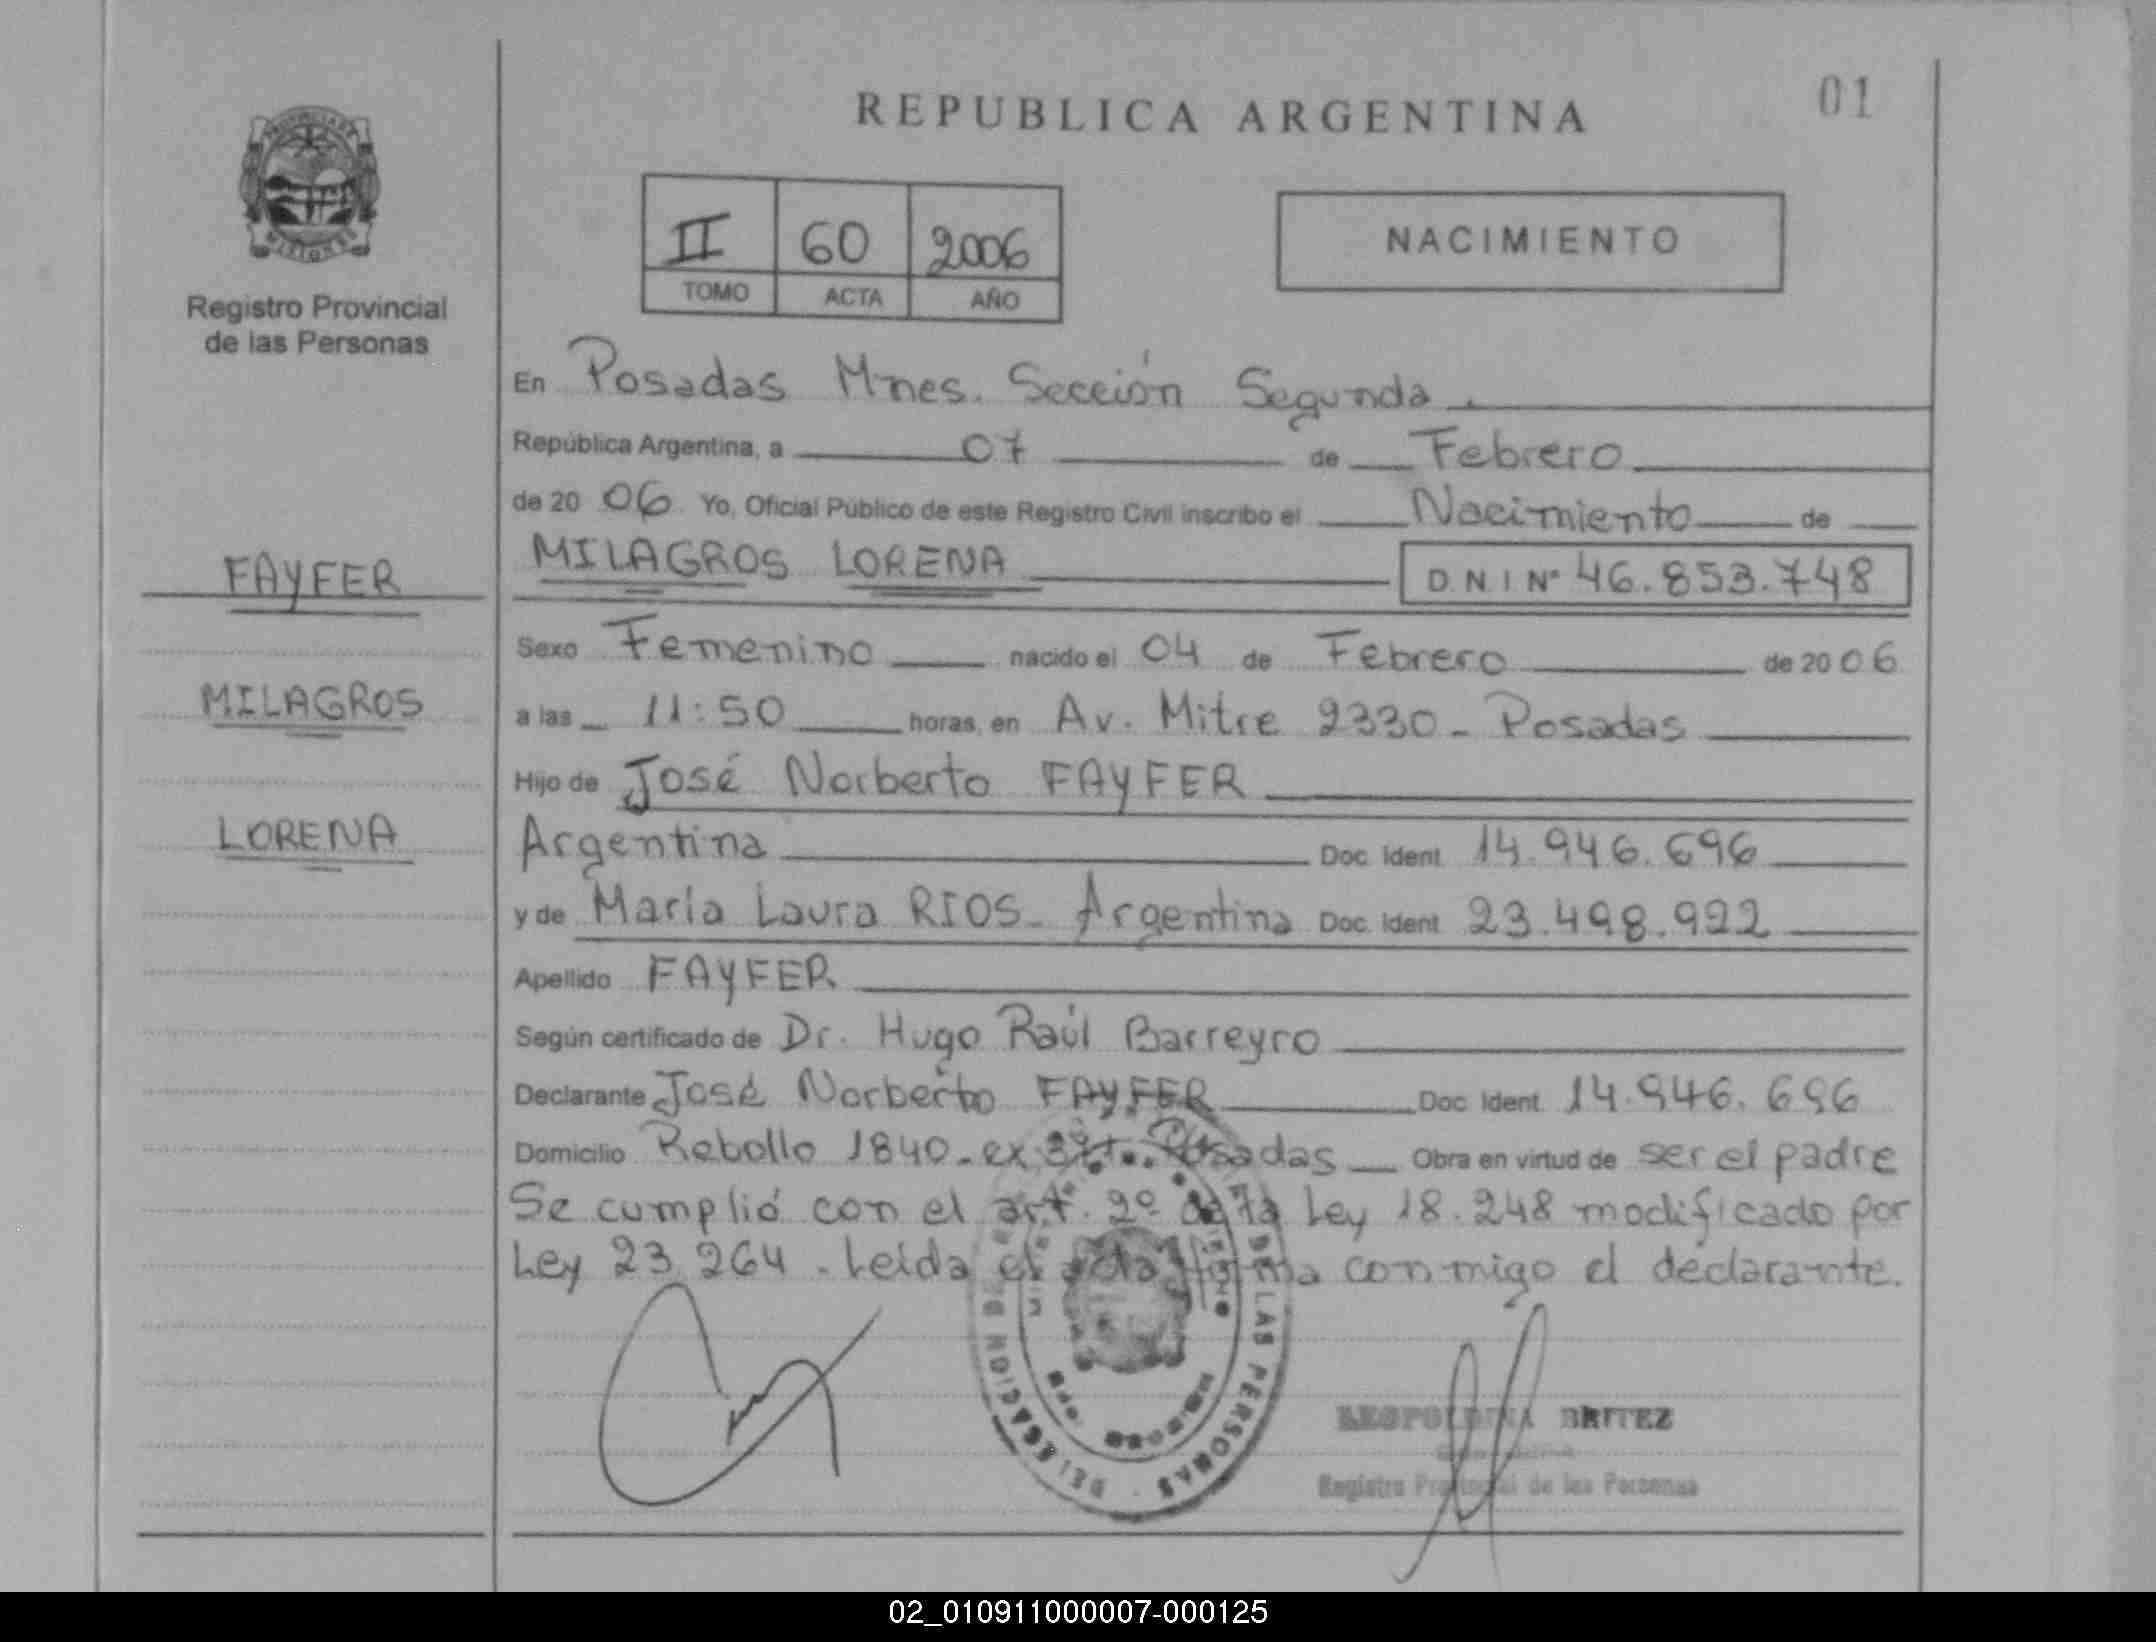 REPUBLICA ARGENTINA
01
Registro Provincial
de las Personas
II 60 2006
TOMO ACTA AÑO
NACIMIENTO
FAYFER
MILAGROS
LORENA
En Posadas Mnes. Sección Segunda
República Argentina, a 07 de Febrero
de 20 06 Yo, Oficial Público de este Registro Civil inscribo el Nacimiento de
MILAGROS LORENA D.N.I Nº 46.853.748
Sexo Femenino nacido el 04 de Febrero de 20 06
a las 11:50 horas, en Av. Mitre 2330 - Posadas
Hijo de José Norberto FAYFER
Argentina Doc. Ident. 14.946.696
y de María Laura RIOS - Argentina Doc. Ident. 23.498.922
Apellido FAYFER
Según certificado de Dr. Hugo Raúl Barreyro
Declarante José Norberto FAYFER Doc. Ident. 14.946.696
Domicilio Rebollo 1840 - ex Posadas Obra en virtud de ser el padre
Se cumplió con el art. 2º de la Ley 18.248 modificado por
Ley 23.264. Leída el acta firma conmigo el declarante.
DELEGACION DE LAS PERSONAS
LEOPOLDINA BRITEZ
Registro Provincial de las Personas
02_010911000007-000125